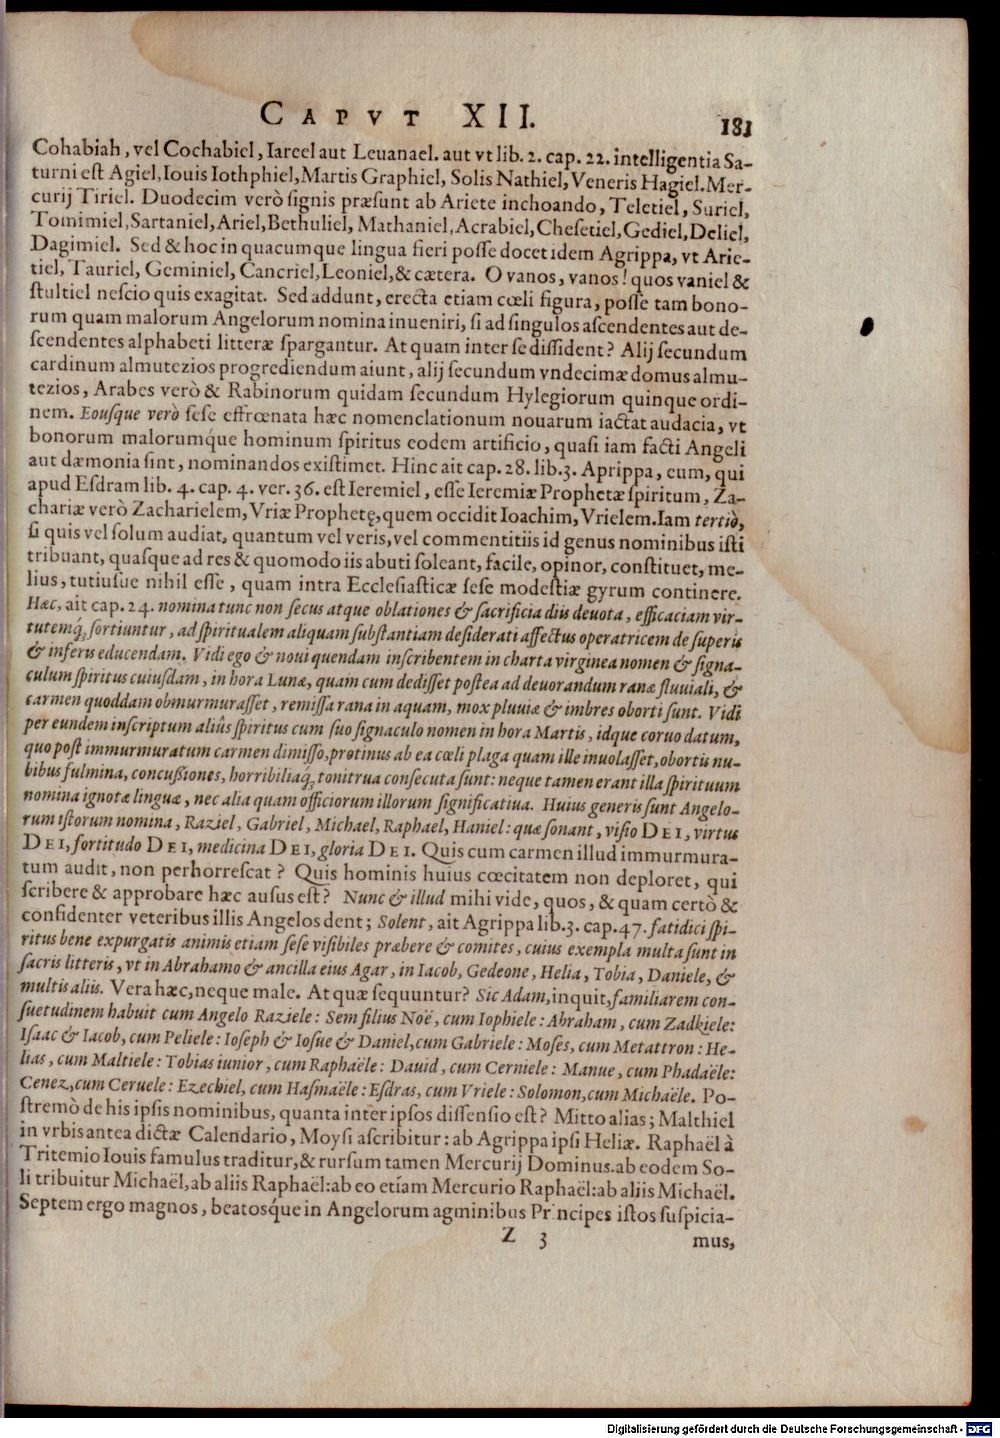 CAPVT XII.
181
Cohabiah, vel Cochabiel, Iareel aut Leuanael. aut vt lib. 2. cap. 22. intelligentia Sa-
turni eſt Agiel, Iouis Iothphiel, Martis Graphiel, Solis Nathiel, Veneris Hagiel. Mer-
curij Tiriel. Duodecim verò ſignis præſunt ab Ariete inchoando, Teletiel, Suriel,
Tomimiel, Sartaniel, Ariel, Bethuliel, Mathaniel, Acrabiel, Cheſetiel, Gediel, Deliel,
Dagimiel. Sed & hoc in quacumque lingua fieri poſſe docet idem Agrippa, vt Arie-
tiel, Tauriel, Geminiel, Cancriel, Leoniel, & cætera. O vanos, vanos! quos vaniel &
ſtultiel neſcio quis exagitat. Sed addunt, erecta etiam cœli figura, poſſe tam bono-
rum quam malorum Angelorum nomina inueniri, ſi ad ſingulos aſcendentes aut de-
ſcendentes alphabeti litteræ ſpargantur. At quam inter ſe diſſident? Alij ſecundum
cardinum almutezios progrediendum aiunt, alij ſecundum vndecimæ domus almu-
tezios, Arabes verò & Rabinorum quidam ſecundum Hylegiorum quinque ordi-
nem. Eouſque verò ſeſe effrœnata hæc nomenclationum nouarum iactat audacia, vt
bonorum malorumq́ue hominum ſpiritus eodem artificio, quaſi iam facti Angeli
aut dæmonia ſint, nominandos exiſtimet. Hinc ait cap. 28. lib. 3. Aprippa, eum, qui
apud Eſdram lib. 4. cap. 4. ver. 36. eſt Ieremiel, eſſe Ieremiæ Prophetæ ſpiritum, Za-
chariæ verò Zacharielem, Vriæ Prophetę, quem occidit Ioachim, Vrielem. Iam tertiò,
ſi quis vel ſolum audiat, quantum vel veris, vel commentitiis id genus nominibus iſti
tribuant, quaſque ad res & quomodo iis abuti ſoleant, facile, opinor, conſtituet, me-
lius, tutiuſue nihil eſſe, quam intra Eccleſiaſticæ ſeſe modeſtiæ gyrum continere.
Hæc, ait cap. 24. nomina tunc non ſecus atque oblationes & ſacrificia diis deuota, efficaciam vir-
tutemq́; ſortiuntur, ad ſpiritualem aliquam ſubſtantiam deſiderati affectus operatricem de ſuperis
& inferis educendam. Vidi ego & noui quendam inſcribentem in charta virginea nomen & ſigna-
culum ſpiritus cuiuſdam, in hora Lunæ, quam cum dediſſet poſtea ad deuorandum ranæ fluuiali, &
carmen quoddam obmurmuraſſet, remiſſa rana in aquam, mox pluuiæ & imbres oborti ſunt. Vidi
per eundem inſcriptum aliûs ſpiritus cum ſuo ſignaculo nomen in hora Martis, idque coruo datum,
quo poſt immurmuratum carmen dimiſſo, protinus ab ea cœli plaga quam ille inuolaſſet, obortis nu-
bibus fulmina, concuſsiones, horribiliaq́; tonitrua conſecuta ſunt: neque tamen erant illa ſpirituum
nomina ignotæ linguæ, nec alia quam officiorum illorum ſignificatiua. Huius generis ſunt Angelo-
rum iſtorum nomina, Raziel, Gabriel, Michael, Raphael, Haniel: quæ ſonant, viſio DEI, virtus
DEI, fortitudo DEI, medicina DEI, gloria DEI. Quis cum carmen illud immurmura-
tum audit, non perhorreſcat? Quis hominis huius cœcitatem non deploret, qui
ſcribere & approbare hæc auſus eſt? Nunc & illud mihi vide, quos, & quam certò &
confidenter veteribus illis Angelos dent; Solent, ait Agrippa lib. 3. cap. 47. fatidici ſpi-
ritus bene expurgatis animis etiam ſeſe viſibiles præbere & comites, cuius exempla multa ſunt in
ſacris litteris, vt in Abrahamo & ancilla eius Agar, in Iacob, Gedeone, Helia, Tobia, Daniele, &
multis aliis. Vera hæc, neque male. At quæ ſequuntur? Sic Adam, inquit, familiarem con-
ſuetudinem habuit cum Angelo Raziele: Sem filius Noë, cum Iophiele: Abraham, cum Zadkiele:
Iſaac & Iacob, cum Peliele: Ioſeph & Ioſue & Daniel, cum Gabriele: Moſes, cum Metattron: He-
lias, cum Maltiele: Tobias iunior, cum Raphaële: Dauid, cum Cerniele: Manue, cum Phadaële:
Cenez, cum Ceruele: Ezechiel, cum Haſmaële: Eſdras, cum Vriele: Solomon, cum Michaële. Po-
ſtremò de his ipſis nominibus, quanta inter ipſos diſſenſio eſt? Mitto alias; Malthiel
in vrbis antea dictæ Calendario, Moyſi aſcribitur: ab Agrippa ipſi Heliæ. Raphaël à
Tritemio Iouis famulus traditur, & rurſum tamen Mercurij Dominus. ab eodem So-
li tribuitur Michaël, ab aliis Raphaël: ab eo etiam Mercurio Raphaël: ab aliis Michaël.
Septem ergo magnos, beatosq́ue in Angelorum agminibus Principes iſtos ſuſpicia-
Z 3
mus,
Digitalisierung gefördert durch die Deutsche Forschungsgemeinschaft - DFG